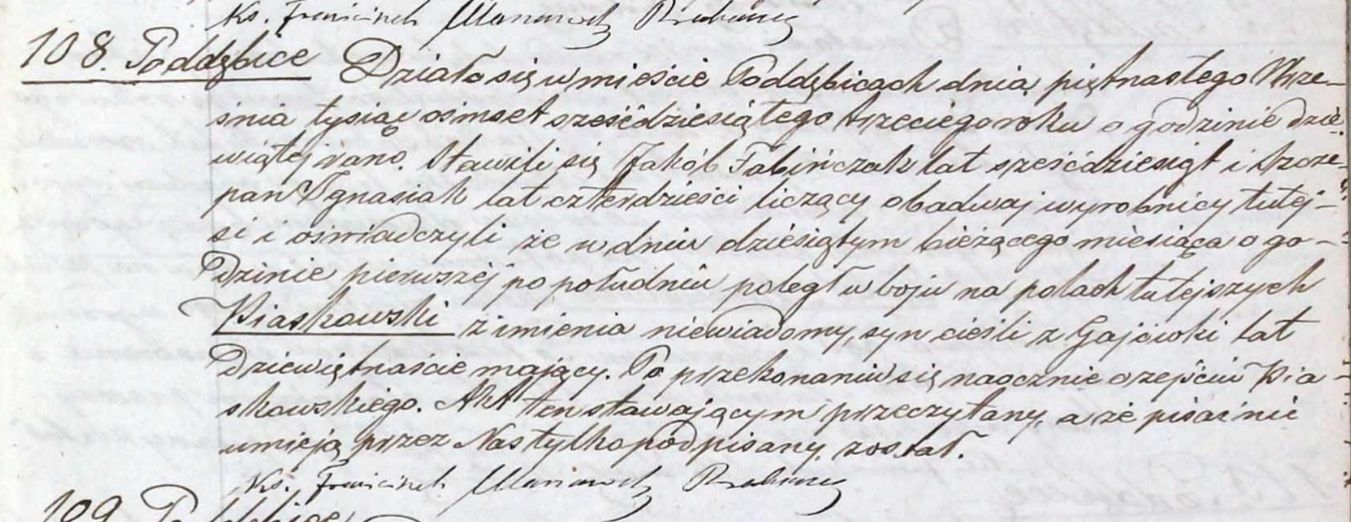 Ks. Franciszek
108. Poddębice Działo się w mieście Poddębicach dnia piętnastego Wrze-
śnia tysiąc ośmset sześćdziesiątego trzeciego roku o godzinie dzie-
wiątej rano. Stawili się Jakób Fabińczak lat sześćdziesiąt i Szcze-
pan Ignasiak lat czterdzieści liczący obadwaj wyrobnicy tutej-
si i oświadczyli że w dniu dziesiątym bieżącego miesiąca o go-
dzinie pierwszej po południu poległ w boju na polach tutejszych
Piaskowski z imienia niewiadomy, syn cieśli z Gajówki lat
dziewiętnaście mający. Po przekonaniu się naocznie o zejściu Pia-
skowskiego. Akt ten stawającym przeczytany, a że pisać nie
umieją przez Nas tylko podpisany został.
Ks. Franciszek
109. Poddębice